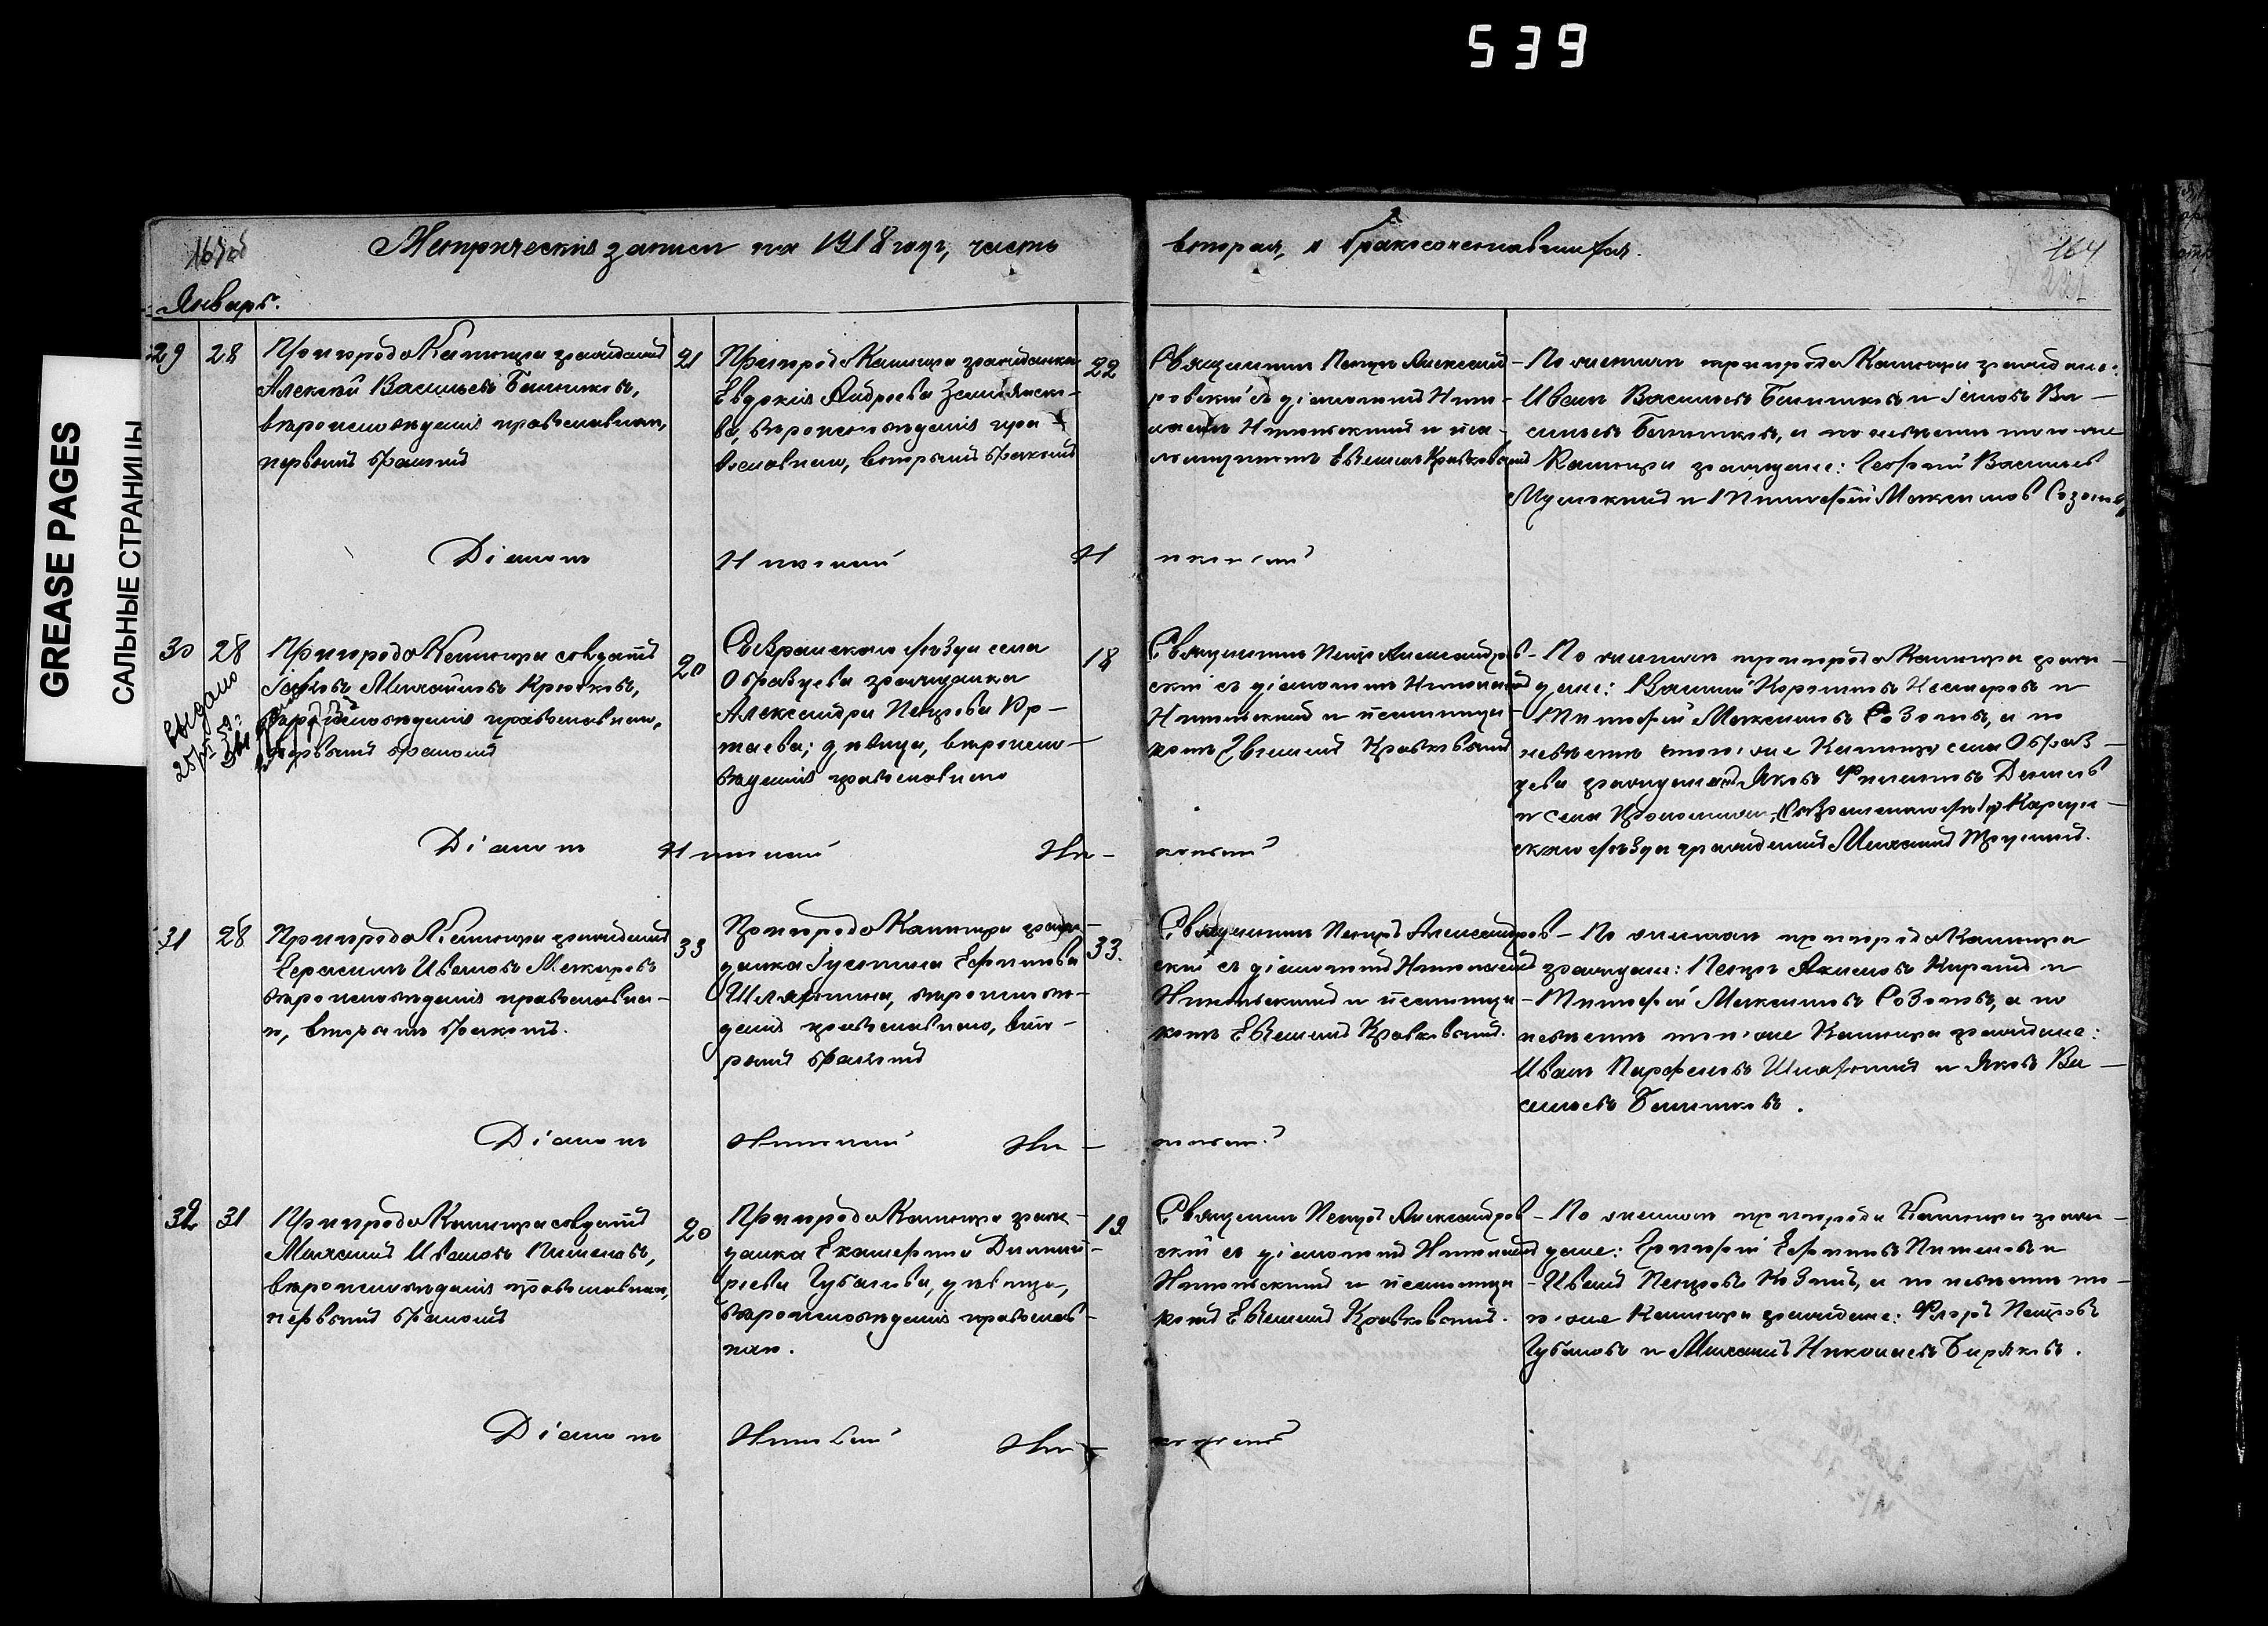 539
GREASE PAGES
САЛЬНЫЕ СТРАНИЦЫ
Метрическія записи на 1918 годъ, часть
вторая, о бракосочетавшихся.
164
Январь.
29 28
Пригорода Кашпира гражданинъ
Алексѣй Васильевъ Банниковъ,
вѣроисповѣданія православнаго,
первымъ бракомъ
21
Пригорода Кашпира гражданка
Евдокія Андреева
ва, вѣроисповѣданія пра-
вославнаго, вторымъ бракомъ
22
Священникъ Петръ Александ-
ровскій съ діакономъ Нико-
лаемъ Никольскимъ и пса-
ломщикомъ Евгеніемъ Кравковскимъ
По женихѣ пригорода Кашпира граждане:
Иванъ Васильевъ Банниковъ и Іаковъ Ва-
сильевъ Банниковъ, а по невѣстѣ того же
Кашпира граждане: Георгій Васильевъ
и Тимофей Максимовъ Созоновъ
Діаконъ Николай Никольскій
30 28
Пригорода Кашпира солдатъ
Іаковъ Михайловъ Крючковъ,
вѣроисповѣданія православнаго,
первымъ бракомъ
выдано
20
Сызранскаго уѣзда села
Образцева гражданка
Александра Петрова Ар-
таева, дѣвица, вѣроиспо-
вѣданія православнаго
18
Священникъ Петръ Александров-
скій съ діакономъ Николаемъ
Никольскимъ и псаломщи-
комъ Евгеніемъ Кравковскимъ
По женихѣ пригорода Кашпира граж-
дане: Василій Нестеровъ и
Тимофей Максимовъ Созоновъ, а по
невѣстѣ того же Кашпира села Образ-
цева гражданинъ Яковъ Филиповъ
и села
скаго уѣзда гражданинъ Михаилъ
Діаконъ Николай Никольскій
31 28
Пригорода Кашпира гражданинъ
Герасимъ Ивановъ
вѣроисповѣданія православна-
го, вторымъ бракомъ.
33
Пригорода Кашпира граж-
данка Іустина Ефимова
вѣроисповѣ-
данія православнаго, вто-
рымъ бракомъ
33.
Священникъ Петръ Александров-
скій съ діакономъ Николаемъ
Никольскимъ и псаломщи-
комъ Евгеніемъ Кравковскимъ.
По женихѣ пригорода Кашпира
граждане: Петръ и
Тимофей Максимовъ Созоновъ, а по
невѣстѣ того же Кашпира граждане:
Иванъ Парфеновъ и Яковъ Ва-
сильевъ Банниковъ.
Діаконъ Николай Никольскій
32 31
Пригорода Кашпира солдатъ
Михаилъ Ивановъ Пименовъ,
вѣроисповѣданія православнаго,
первымъ бракомъ
20
Пригорода Кашпира граж-
данка Екатерина Дмитрі-
ева Губанова, дѣвица,
вѣроисповѣданія православ-
наго.
19
Священникъ Петръ Александров-
скій съ діакономъ Николаемъ
Никольскимъ и псаломщи-
комъ Евгеніемъ Кравковскимъ.
По женихѣ пригорода Кашпира граж-
дане: Григорій Ефимовъ Пименовъ и
Иванъ Петровъ а по невѣстѣ то-
го же Кашпира граждане: Флоръ Петровъ
Губановъ и Михаилъ Николаевъ Биряковъ.
Діаконъ Николай Никольскій